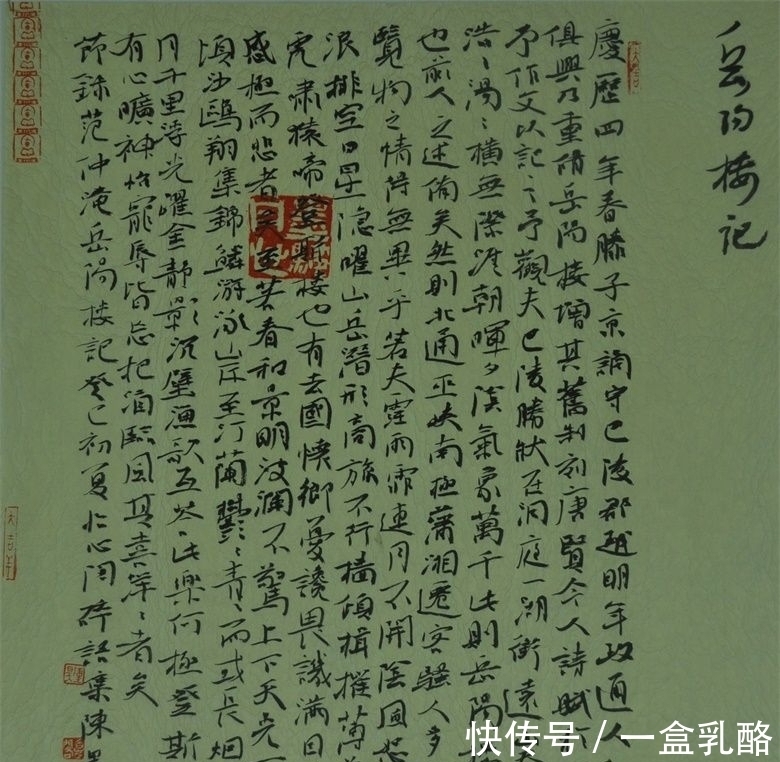 岳阳楼记
慶歷四年春滕子京謫守巴陵郡越明年政通人
俱興乃重脩岳陽樓增其舊制刻唐賢今人詩賦於
予作文以記々予觀夫巴陵勝狀在洞庭一湖銜遠
浩々湯々橫無際涯朝暉夕陰氣象萬千此則岳陽
也前人之述備矣然則北通巫峽南極瀟湘遷客騷人多
覽物之情得無異乎若夫霪雨霏連月不開陰風怒
浪排空日星隐曜山岳潛形商旅不行檣傾楫摧薄
虎嘯猿啼登斯樓也有去國懷鄉憂讒畏譏滿目
感極而悲者矣至若春和景明波瀾不驚上下天光一
頃沙鷗翔集錦鱗游泳岸芷汀蘭鬱々青々而或長烟
月千里浮光曜金静影沉璧漁歌互答此樂何極登斯
有心曠神怡寵辱皆忘把酒臨風其喜洋々者矣
節錄范仲淹岳陽樓記癸巳初夏仁心閑碎語集陳
快传号/一盒乳酪